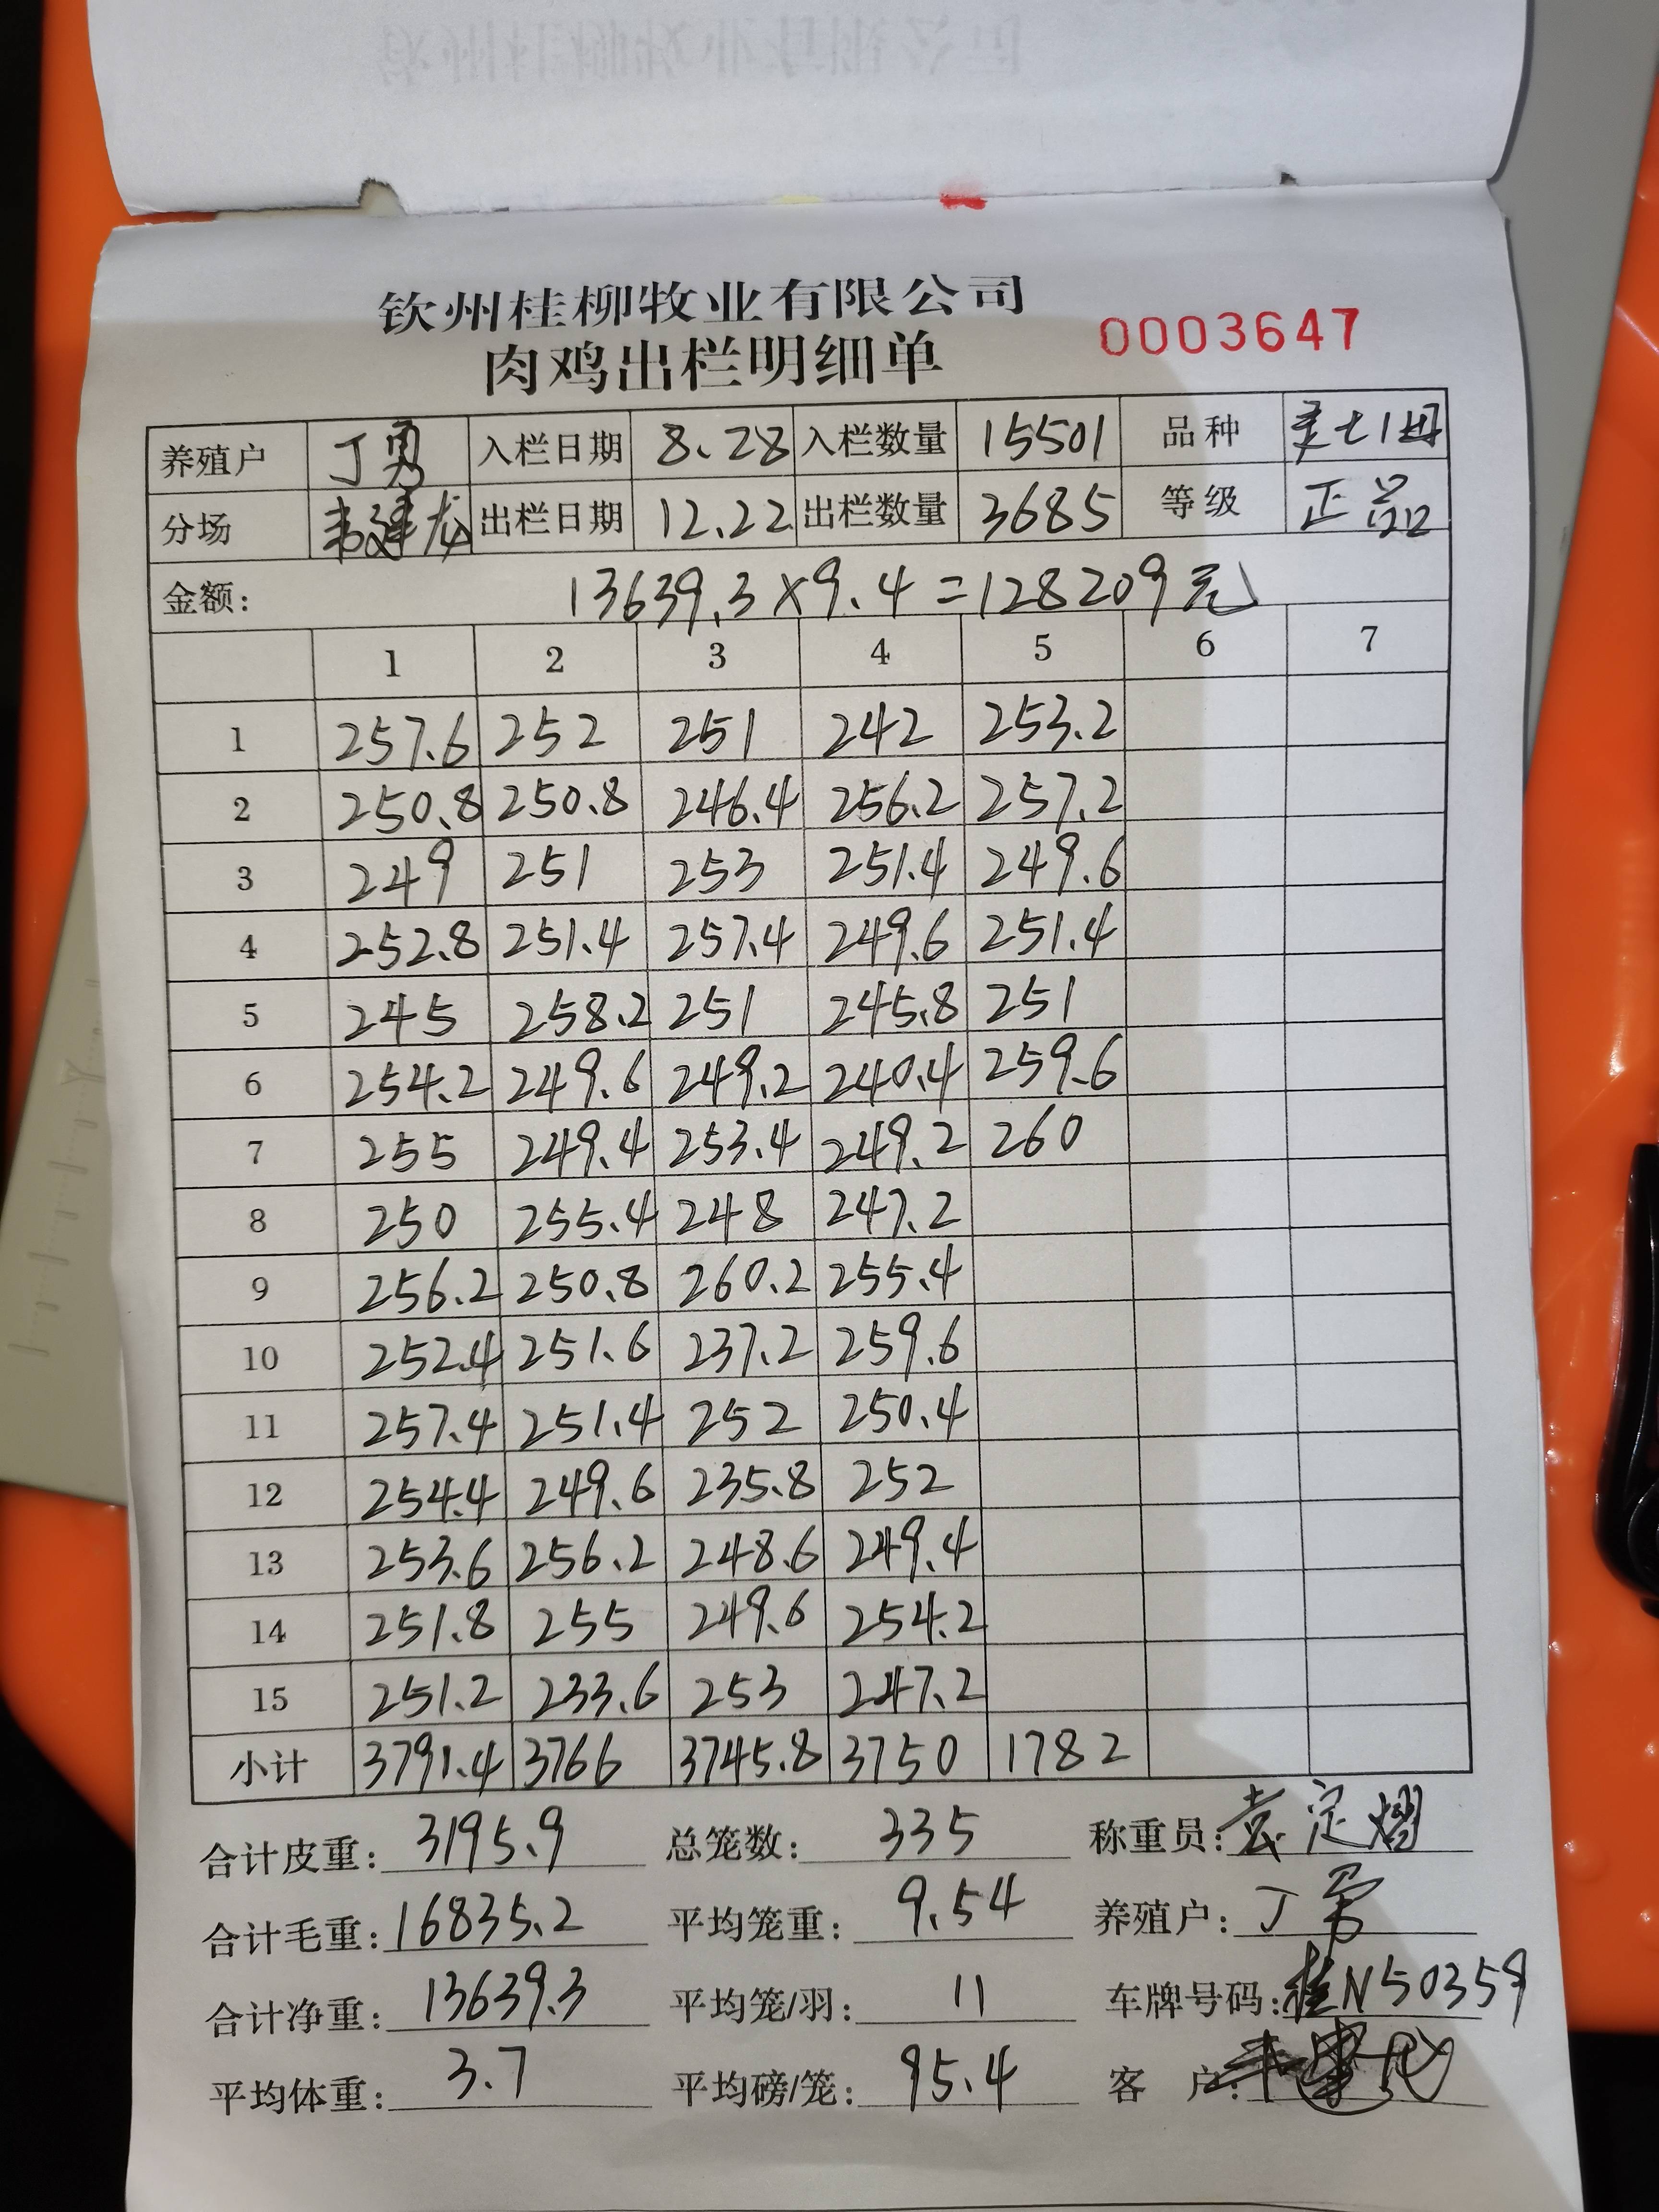 钦州桂柳牧业有限公司
肉鸡出栏明细单 0003647
养殖户 丁勇 入栏日期 8.28 入栏数量 15501 品种
分场 韦建龙 出栏日期 12.22 出栏数量 3685 等级 正品
金额: 13639.3×9.4=128209元
1 2 3 4 5 6 7
1 257.6 252 251 242 253.2
2 250.8 250.8 246.4 256.2 257.2
3 249 251 253 251.4 249.6
4 252.8 251.4 257.4 249.6 251.4
5 245 258.2 251 245.8 251
6 254.2 249.6 249.2 240.4 259.6
7 255 249.4 253.4 249.2 260
8 250 255.4 248 247.2
9 256.2 250.8 260.2 255.4
10 252.4 251.6 237.2 259.6
11 257.4 251.4 252 250.4
12 254.4 249.6 235.8 252
13 253.6 256.2 248.6 249.4
14 251.8 255 249.6 254.2
15 251.2 233.6 253 247.2
小计 3791.4 3766 3745.8 3750 1782
合计皮重: 3195.9 总笼数: 335 称重员: 袁定熠
合计毛重: 16835.2 平均笼重: 9.54 养殖户: 丁勇
合计净重: 13639.3 平均笼/羽: 11 车牌号码: 桂N50359
平均体重: 3.7 平均磅/笼: 95.4 客户: